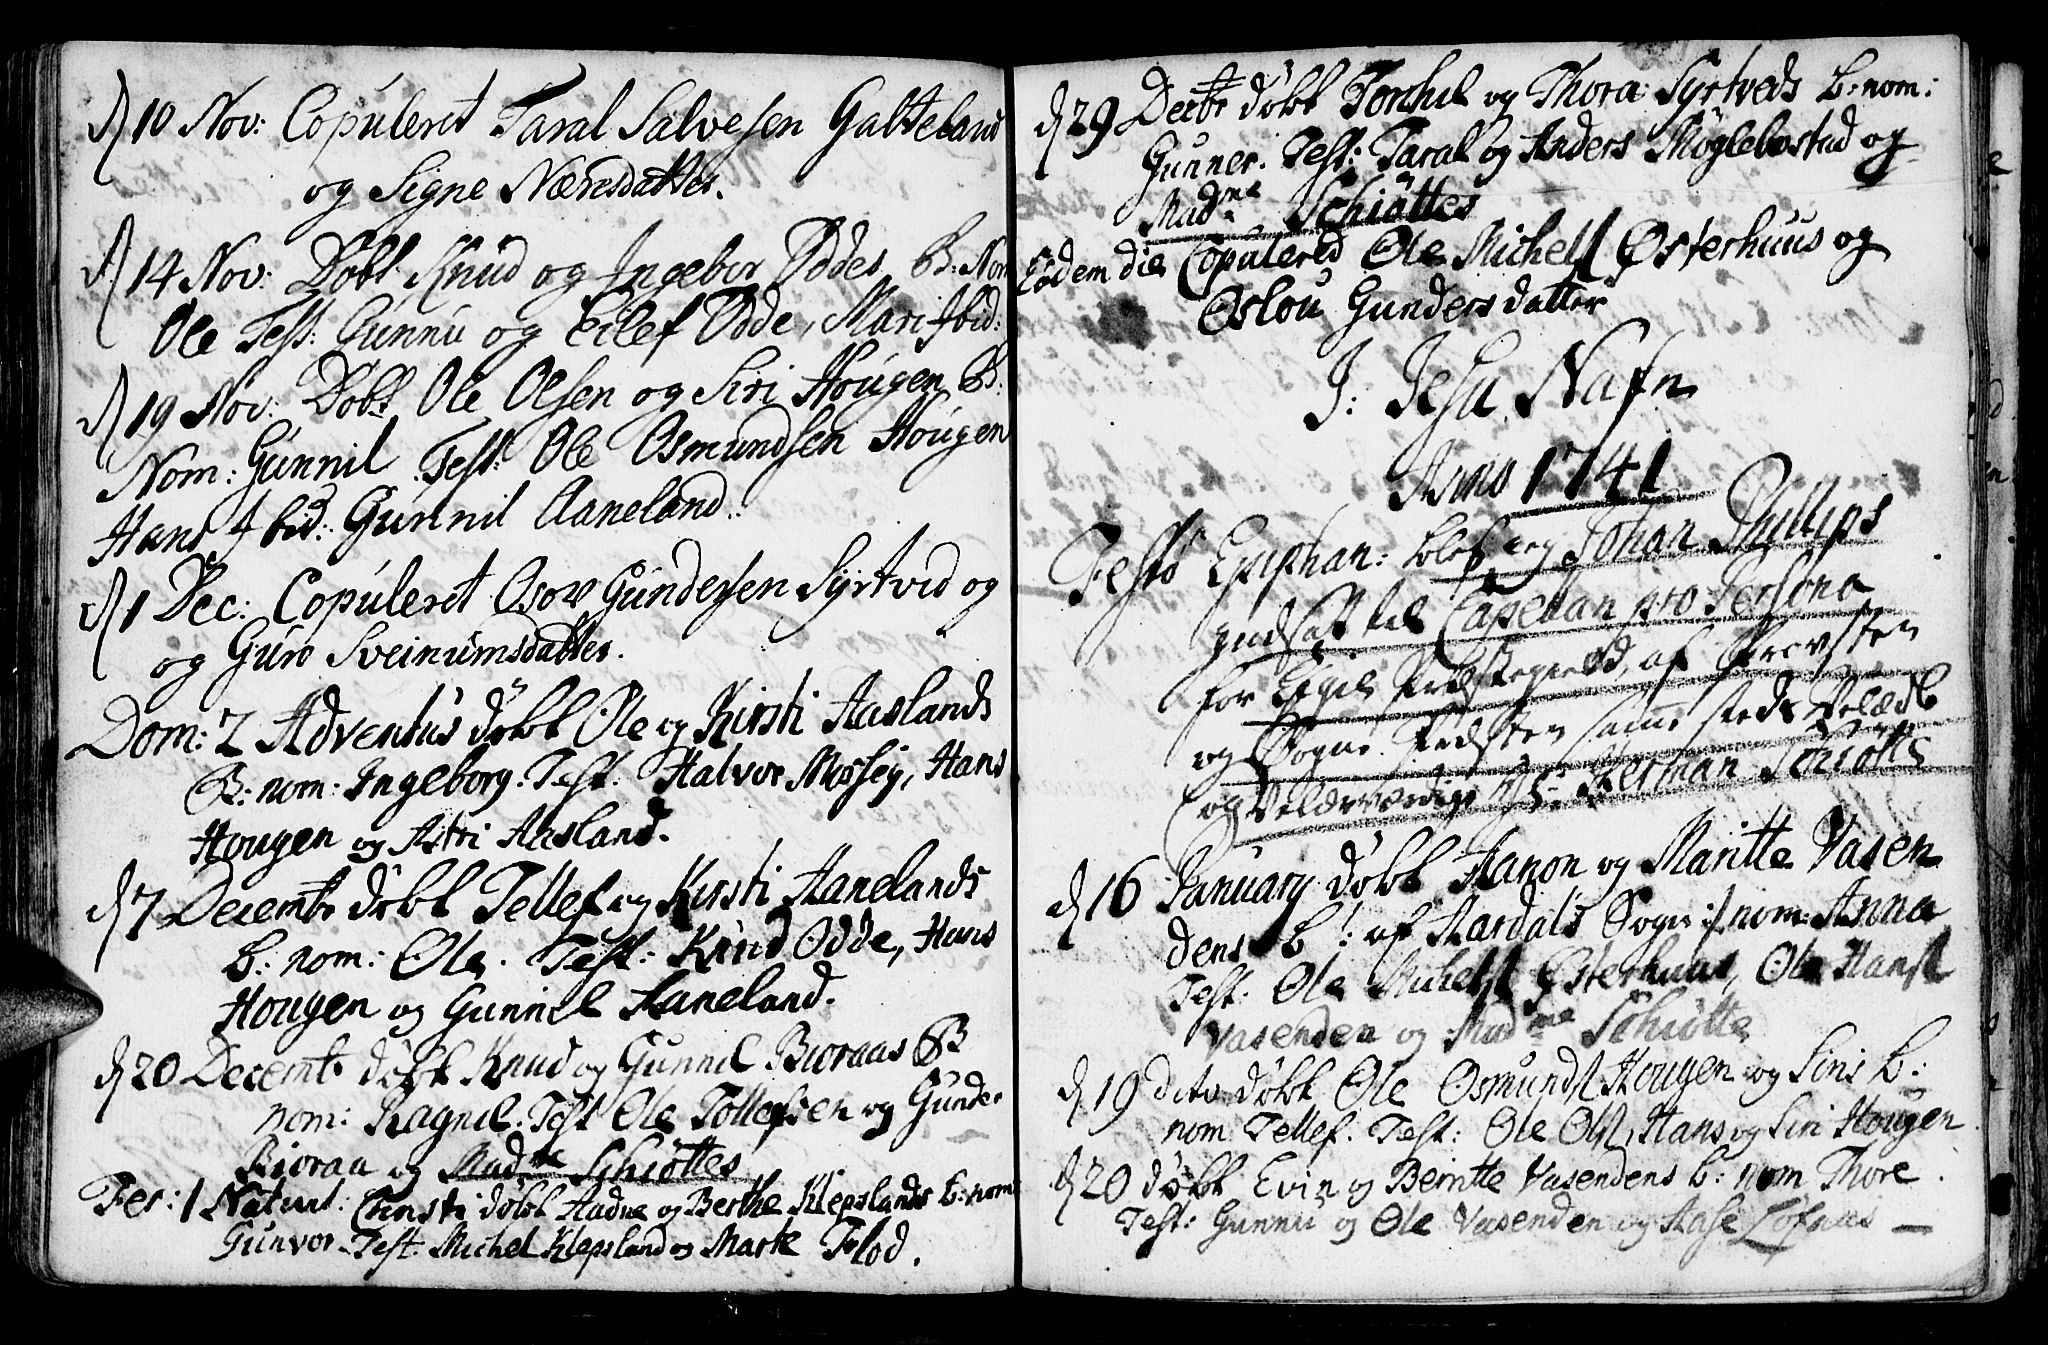 d 10 Nov: Copuleret Taral Salvesen Galteland
og Signe Nærisdatter.
d 14 Nov: Døbt Knud og Ingebor Oddes B: Nom
Ole Test: Gunnu og Eilef Odde, Mari Ibid:
d 19 Nov: Døbt Ole Olsen og Siri Hougen B:
Nom: Gunnil Test: Ole Osmundsen Hougen
Hans Ibid: Gunnil Aaneland.
d 1 Dec: Copuleret Osov Gundersen Syrtvid og
og Guro Sveinumsdatter.
Dom: 2 Adventus døbt Ole og Kirsti Aaslands
B: nom: Ingeborg. Test: Halvor Mosseij, Hans
Hougen og Astri Aasland.
d 7 Decembr døbt Tellef og Kirsti Aanelands
b: nom: Ole. Test: Knud Odde, Hans
Hougen og Gunnil Aaneland.
d 20 Decembr døbt Knud og Gunnil Bioraas B
nom: Ragnil. Test Ole Tollefsen og Gunder
Bioraa og Madme Schiøttes
Fer: 1 Nativit: Christi døbt Aadne og Berthe Klepslands b: nom
Gunvor. Test: Michel Klepsland og Marte Flod.
d 29 Decbr døbt Torchil og Thora Syrtveds b: nom:
Gunner. Test: Taral og Anders Møglebostad og
Madme Schiøttes
Eodem die Copulered Ole Michels Østerhuus og
Oslou Gundersdatter
J: Jesu Nafn
Anno 1741
Festo Epiphan: blef ieg Johan Phillips
indsatt til Capellan pro Persona
for Præstegield, af Provsten
og Sogne Præsten samme steds Velædle
og Velærværdige Hr Herman Schiøtts
d 16 January døbt Aanon og Maritte Vasen
dens b: af Aardals Sogn nom: Anna
Test: Ole Michels Østerhuus, Ole Hans
Vasenden og Madme Schiøtte
d 19 dito døbt Ole Osmunds Hougen og Siris b:
nom Tellef. Test: Ole Ols, Hans og Siri Hougen
d 20 døbt Evin og Beritte Vasendens b: nom Thore
Test: Gunnu og Ole Vasenden og Aase Løfnes